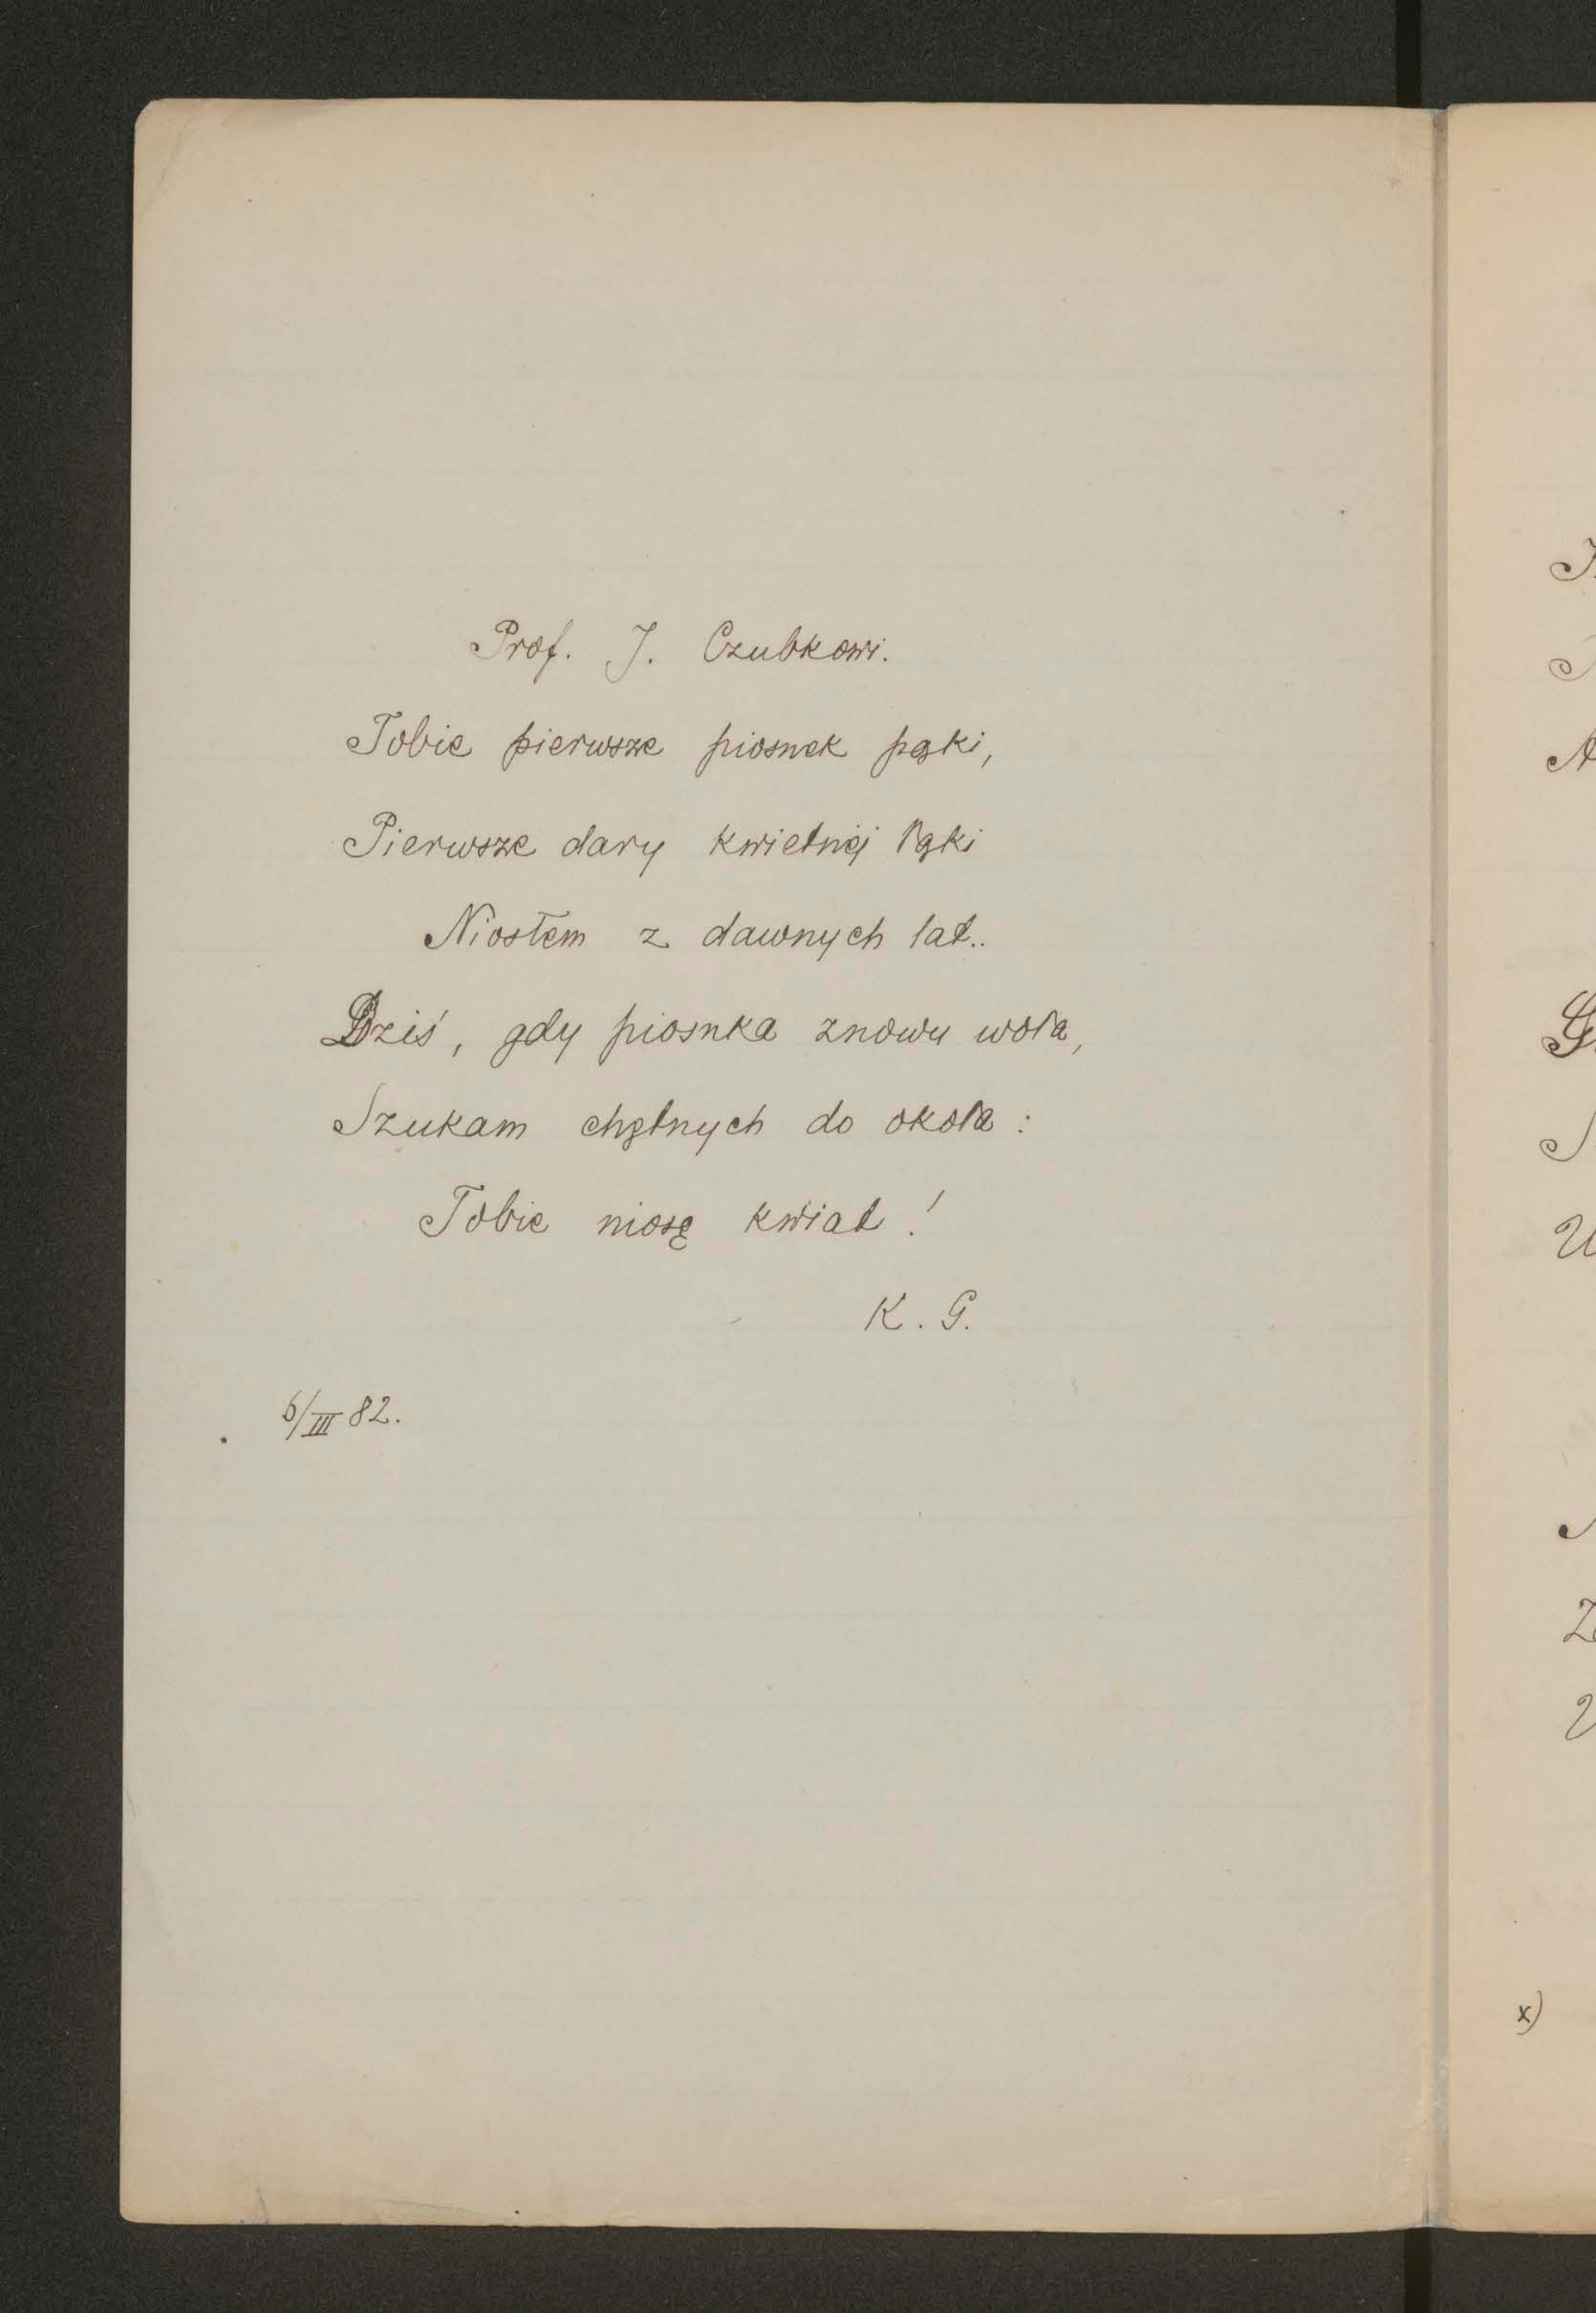 Prof. J. Czubkowi.
Tobie pierwsze piosnek pąki,
Pierwsze dary kwietnéj łąki
Niosłem z dawnych lat..
Dziś, gdy piosnka znowu woła,
Szukam chętnych do okoła:
Tobie niosę kwiat!
K. G.
6/III 82.
x)